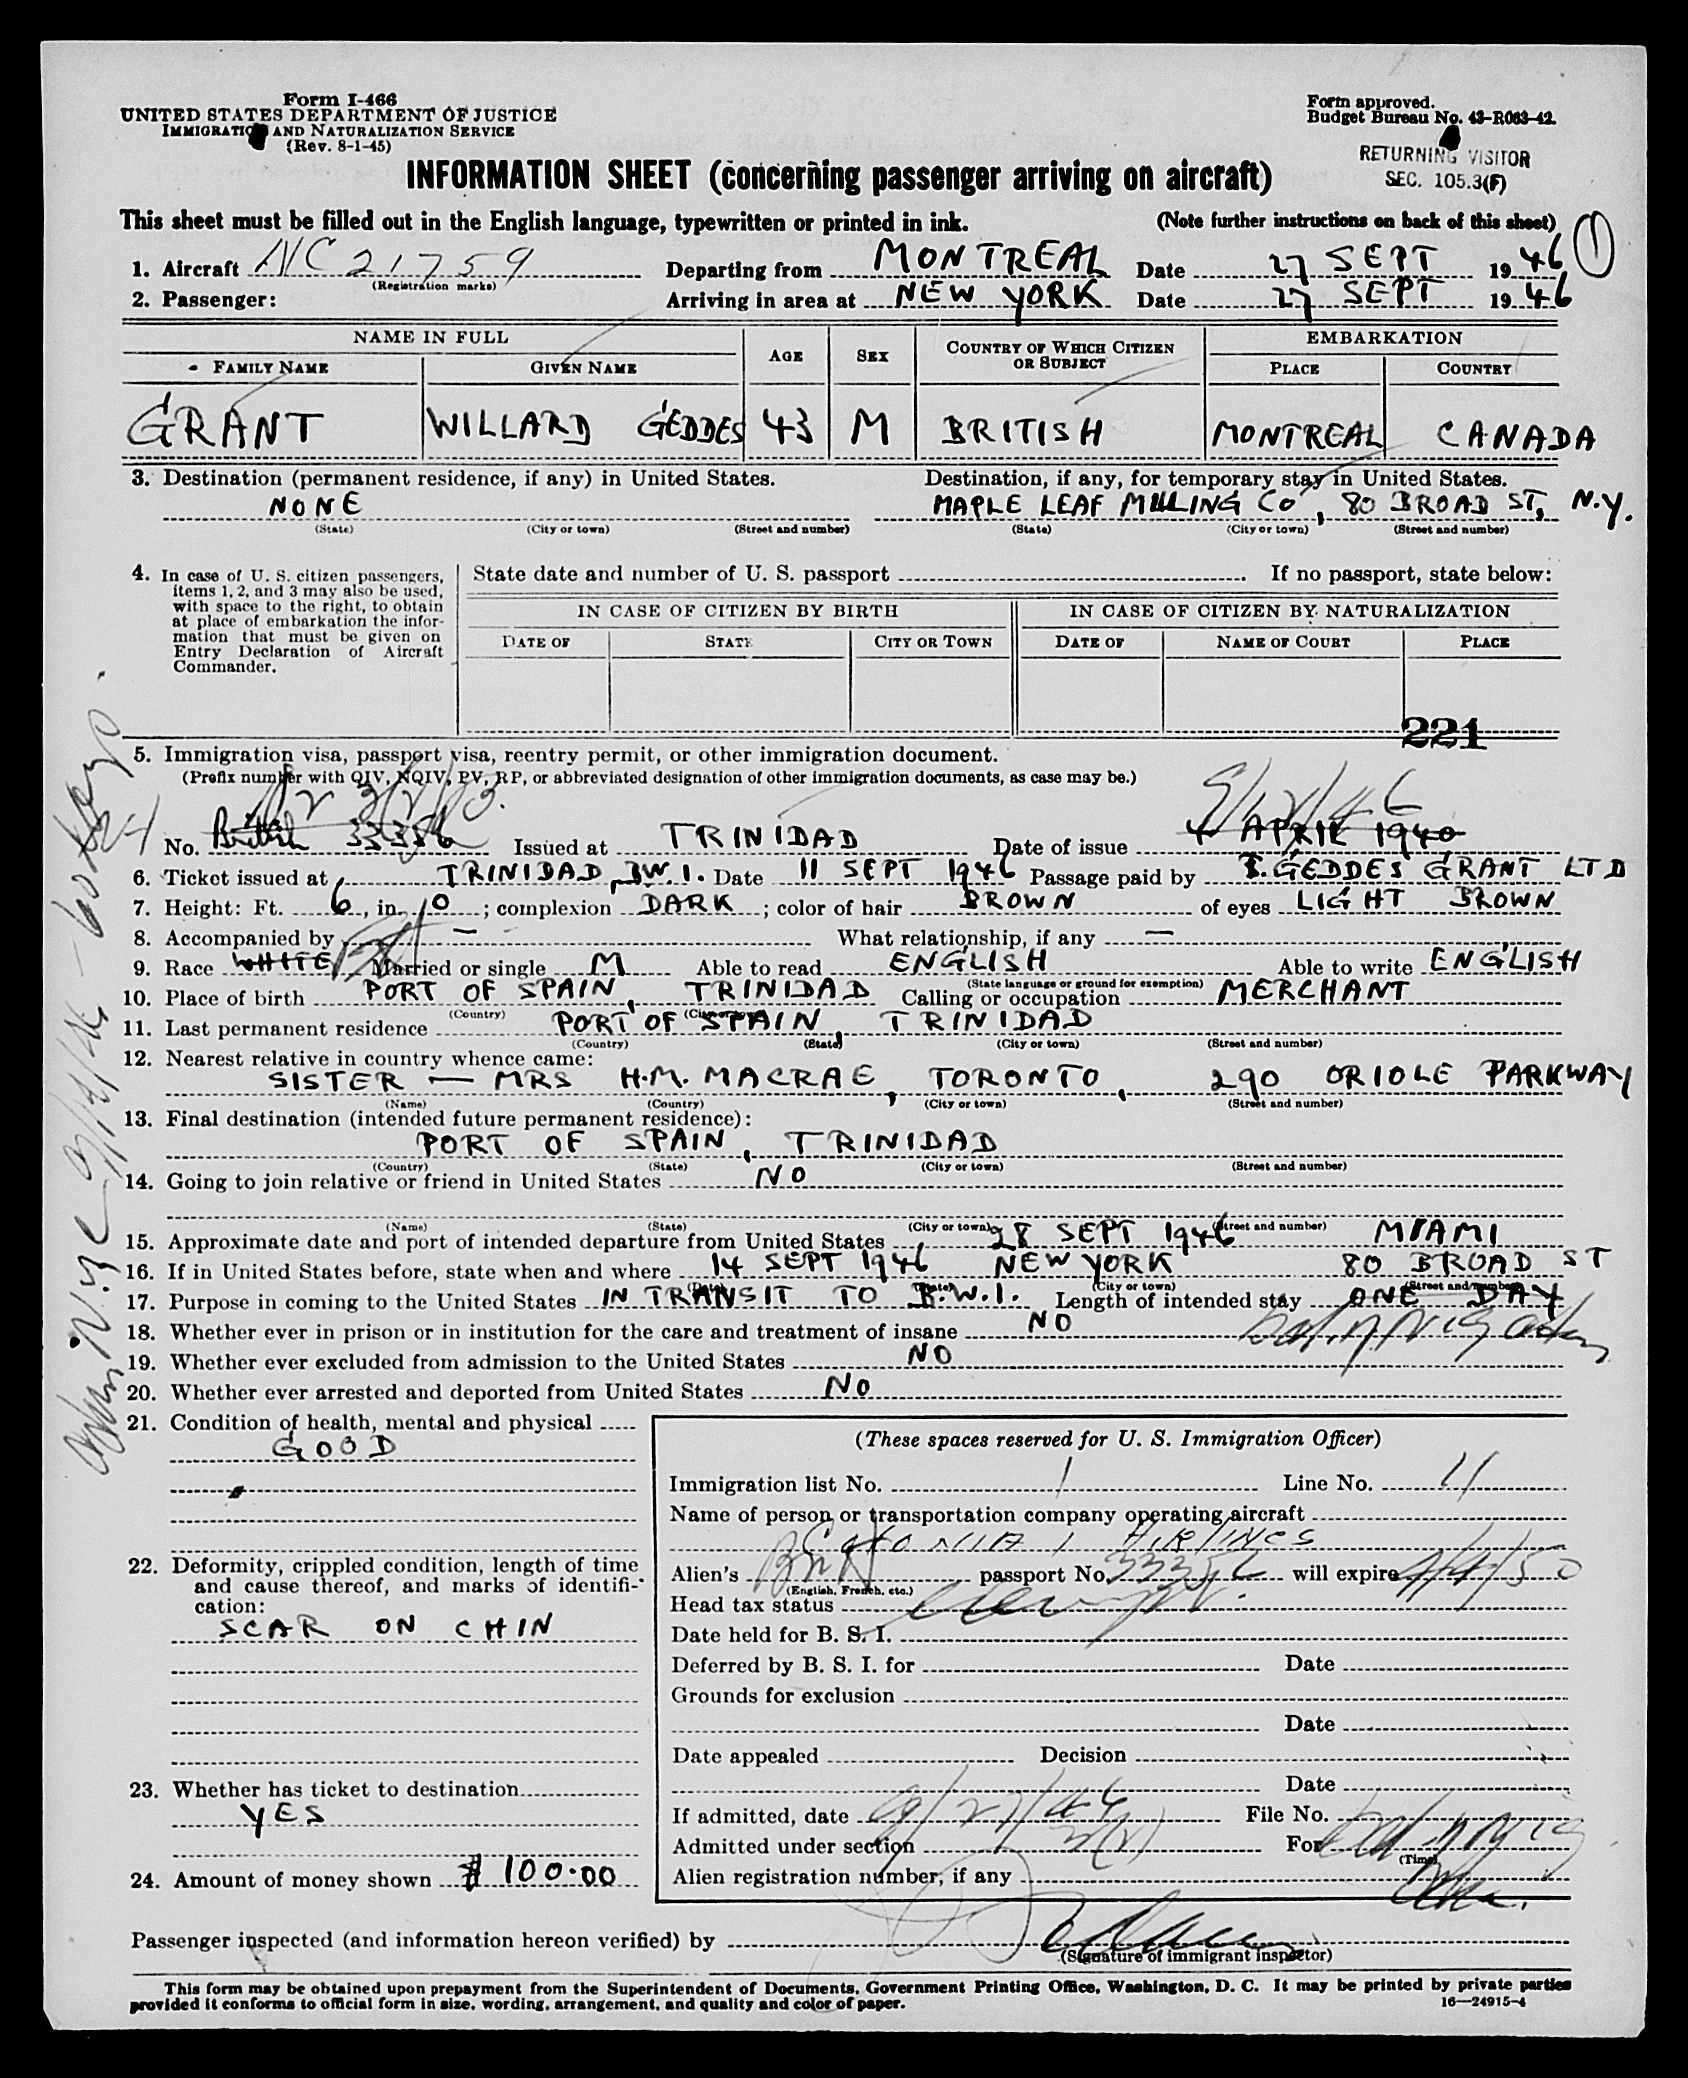 Form I-466
UNITED STATES DEPARTMENT OF JUSTICE
IMMIGRATION AND NATURALIZATION SERVICE
(Rev. 8-1-45)
Form approved.
Budget Bureau No. 43-R063-42.
RETURNING VISITOR
SEC. 105.3(F)
INFORMATION SHEET (concerning passenger arriving on aircraft)
This sheet must be filled out in the English language, typewritten or printed in ink. (Note further instructions on back of this sheet) 1
1. Aircraft NC 21759 Departing from MONTREAL Date 27 SEPT 1946
(Registration marks)
2. Passenger: Arriving in area at NEW YORK Date 27 SEPT 1946
NAME IN FULL AGE SEX COUNTRY OF WHICH CITIZEN OR SUBJECT EMBARKATION
FAMILY NAME GIVEN NAME PLACE COUNTRY
GRANT WILLARD GEDDES 43 M BRITISH MONTREAL CANADA
3. Destination (permanent residence, if any) in United States. Destination, if any, for temporary stay in United States.
NONE MAPLE LEAF MILLING CO, 80 BROAD ST, N.Y.
(State) (City or town) (Street and number) (State) (City or town) (Street and number)
4. In case of U. S. citizen passengers, items 1, 2, and 3 may also be used, with space to the right, to obtain at place of embarkation the information that must be given on Entry Declaration of Aircraft Commander.
State date and number of U. S. passport If no passport, state below:
IN CASE OF CITIZEN BY BIRTH IN CASE OF CITIZEN BY NATURALIZATION
DATE OF STATE CITY OR TOWN DATE OF NAME OF COURT PLACE
221
5. Immigration visa, passport visa, reentry permit, or other immigration document.
(Prefix number with QIV, NQIV, PV, RP, or abbreviated designation of other immigration documents, as case may be.)
9/12/46
No. British 33356 Issued at TRINIDAD Date of issue 4 APRIL 1940
6. Ticket issued at TRINIDAD, B.W.I. Date 11 SEPT 1946 Passage paid by T. GEDDES GRANT LTD
7. Height: Ft. 6, in. 0; complexion DARK; color of hair BROWN of eyes LIGHT BROWN
8. Accompanied by — What relationship, if any —
9. Race WHITE Married or single M Able to read ENGLISH Able to write ENGLISH
(State language or ground for exemption)
10. Place of birth PORT OF SPAIN, TRINIDAD Calling or occupation MERCHANT
(Country) (City or town)
11. Last permanent residence PORT OF SPAIN, TRINIDAD
(Country) (State) (City or town) (Street and number)
12. Nearest relative in country whence came:
SISTER — MRS H.M. MACRAE, TORONTO, 290 ORIOLE PARKWAY
(Name) (Country) (City or town) (Street and number)
13. Final destination (intended future permanent residence):
PORT OF SPAIN, TRINIDAD
(Country) (State) (City or town) (Street and number)
14. Going to join relative or friend in United States NO
(Name) (State) (City or town) (Street and number)
15. Approximate date and port of intended departure from United States 28 SEPT 1946 MIAMI
16. If in United States before, state when and where 14 SEPT 1946 NEW YORK 80 BROAD ST
(Date) (State) (City or town) (Street and number)
17. Purpose in coming to the United States IN TRANSIT TO B.W.I. Length of intended stay ONE DAY
18. Whether ever in prison or in institution for the care and treatment of insane NO
19. Whether ever excluded from admission to the United States NO
20. Whether ever arrested and deported from United States NO
21. Condition of health, mental and physical
GOOD
22. Deformity, crippled condition, length of time and cause thereof, and marks of identification:
SCAR ON CHIN
23. Whether has ticket to destination
YES
24. Amount of money shown $100.00
(These spaces reserved for U. S. Immigration Officer)
Immigration list No. 1 Line No. 11
Name of person or transportation company operating aircraft
COLONIAL AIRLINES
Alien's passport No. 33356 will expire 4/4/50
(English, French, etc.)
Head tax status
Date held for B. S. I.
Deferred by B. S. I. for Date
Grounds for exclusion
Date
Date appealed Decision
Date
If admitted, date 9/27/46 File No.
Admitted under section 3(2) For
(Time)
Alien registration number, if any
Passenger inspected (and information hereon verified) by
(Signature of immigrant inspector)
This form may be obtained upon prepayment from the Superintendent of Documents, Government Printing Office, Washington, D. C. It may be printed by private parties
provided it conforms to official form in size, wording, arrangement, and quality and color of paper. 16—24915-4